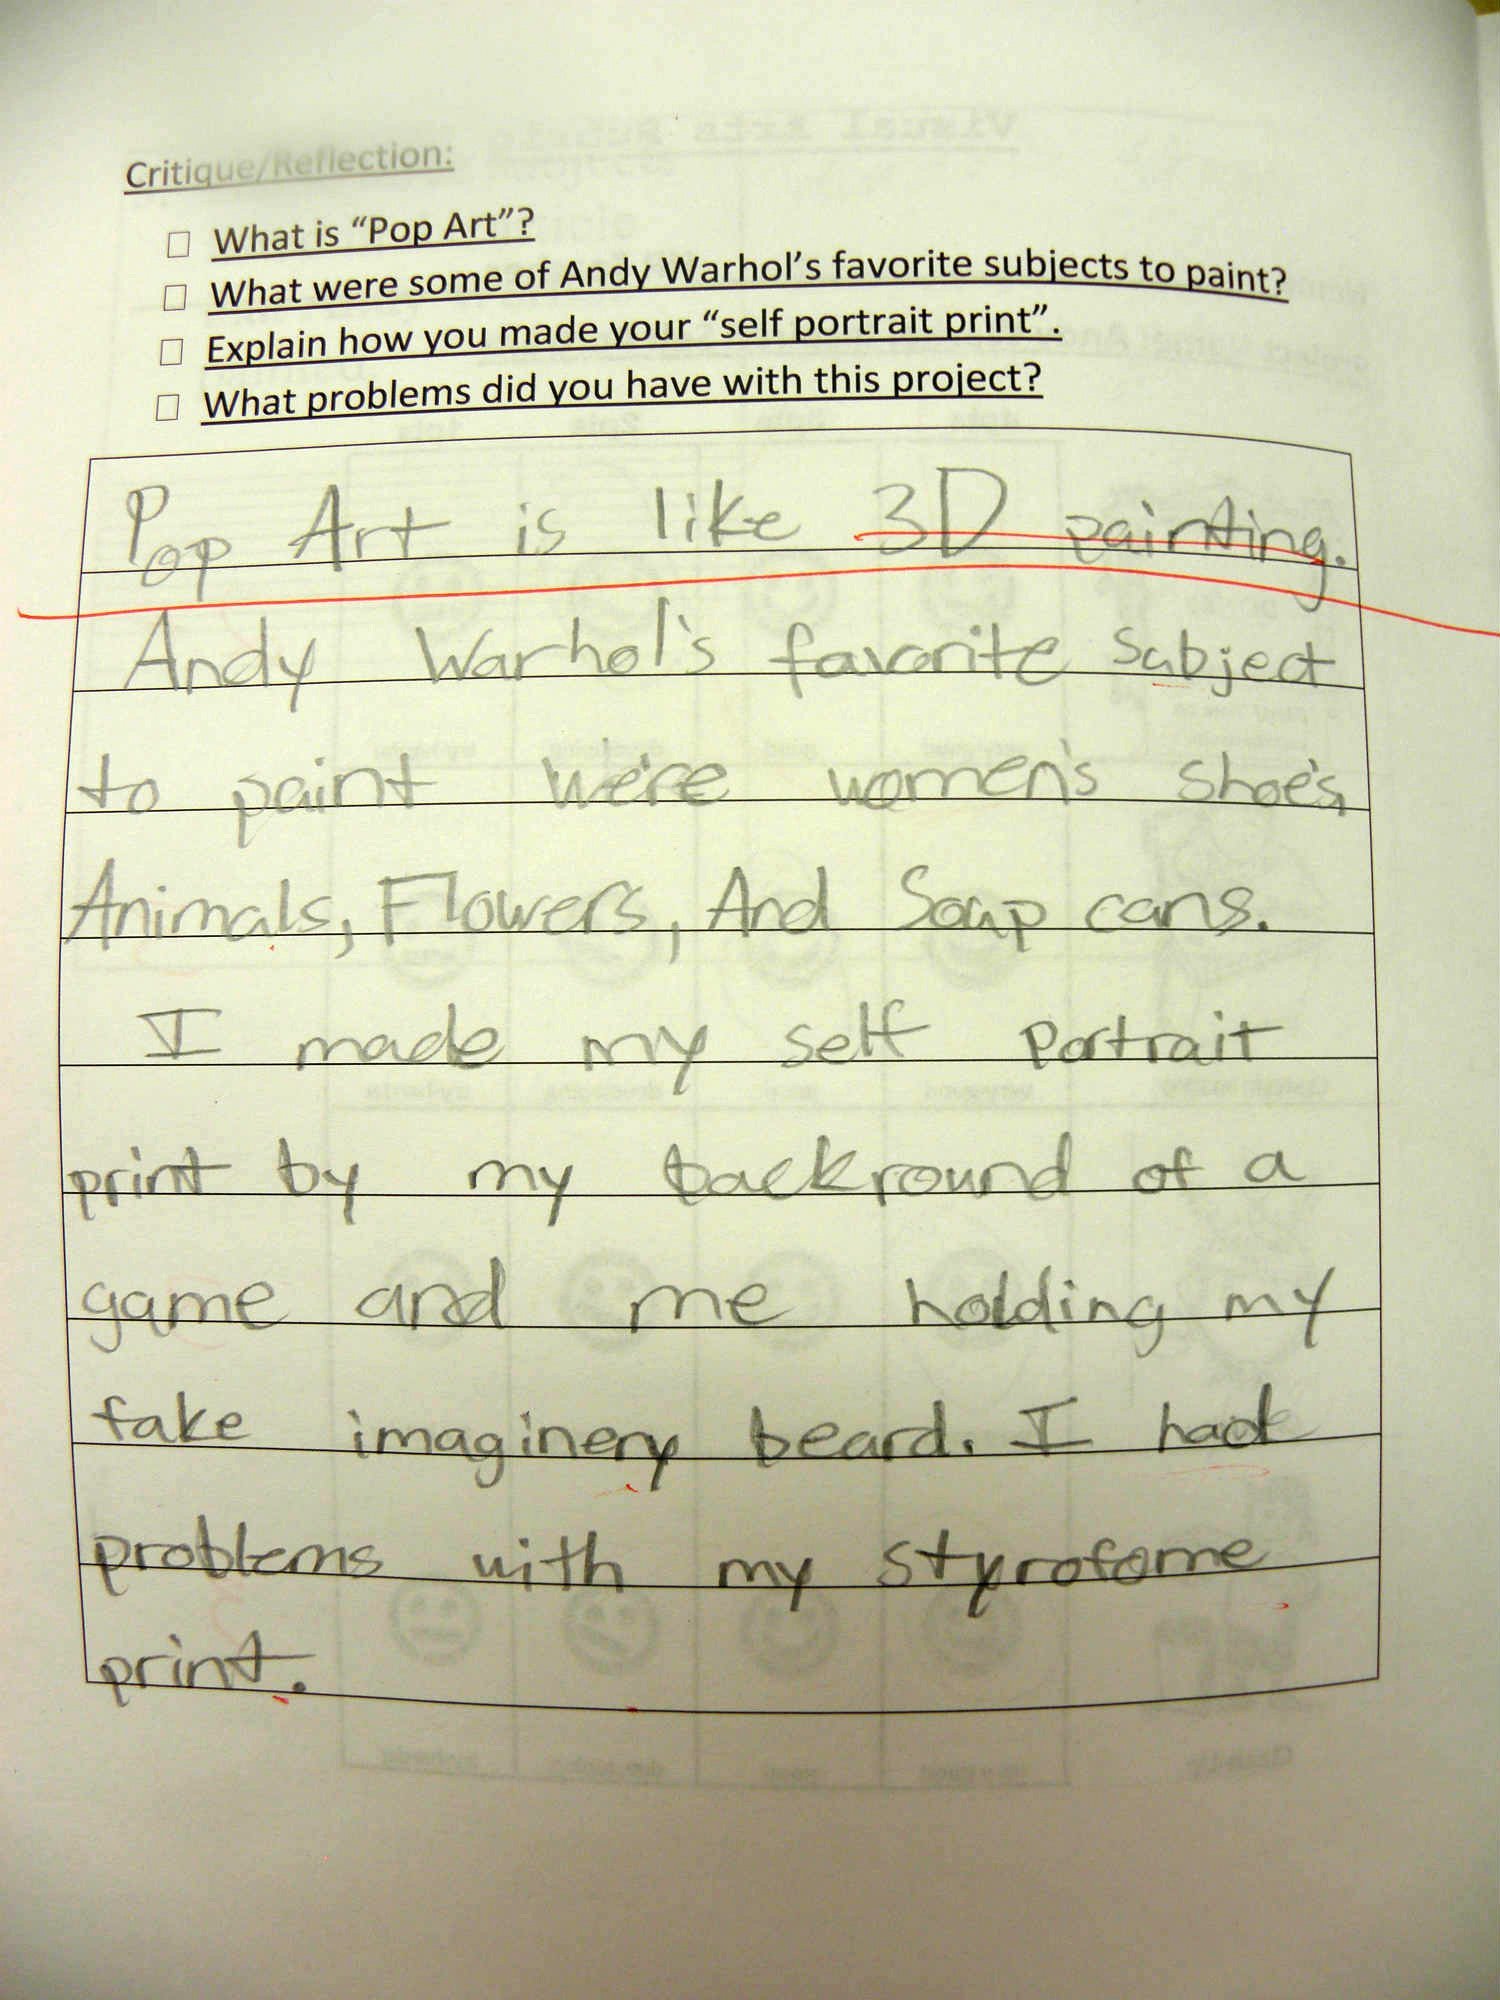 Critique/Reflection:
□ What is “Pop Art”?
□ What were some of Andy Warhol’s favorite subjects to paint?
□ Explain how you made your “self portrait print”.
□ What problems did you have with this project?
Pop Art is like 3D painting.
Andy Warhol's favorite subject
to paint we're women's shoe's,
Animals, Flowers, And Soup cans.
I made my self portrait
print by my backround of a
game and me holding my
fake imaginery beard. I had
problems with my styrofome
print.